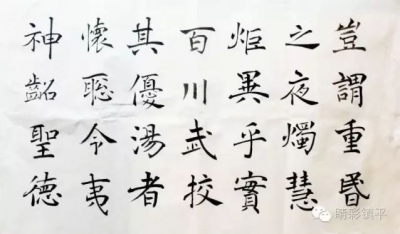 豈謂重昬
之夜燭慧
炬異乎實
百川武校
其優湯者
懷聡令夷
神齠聖德
睛彩镇平